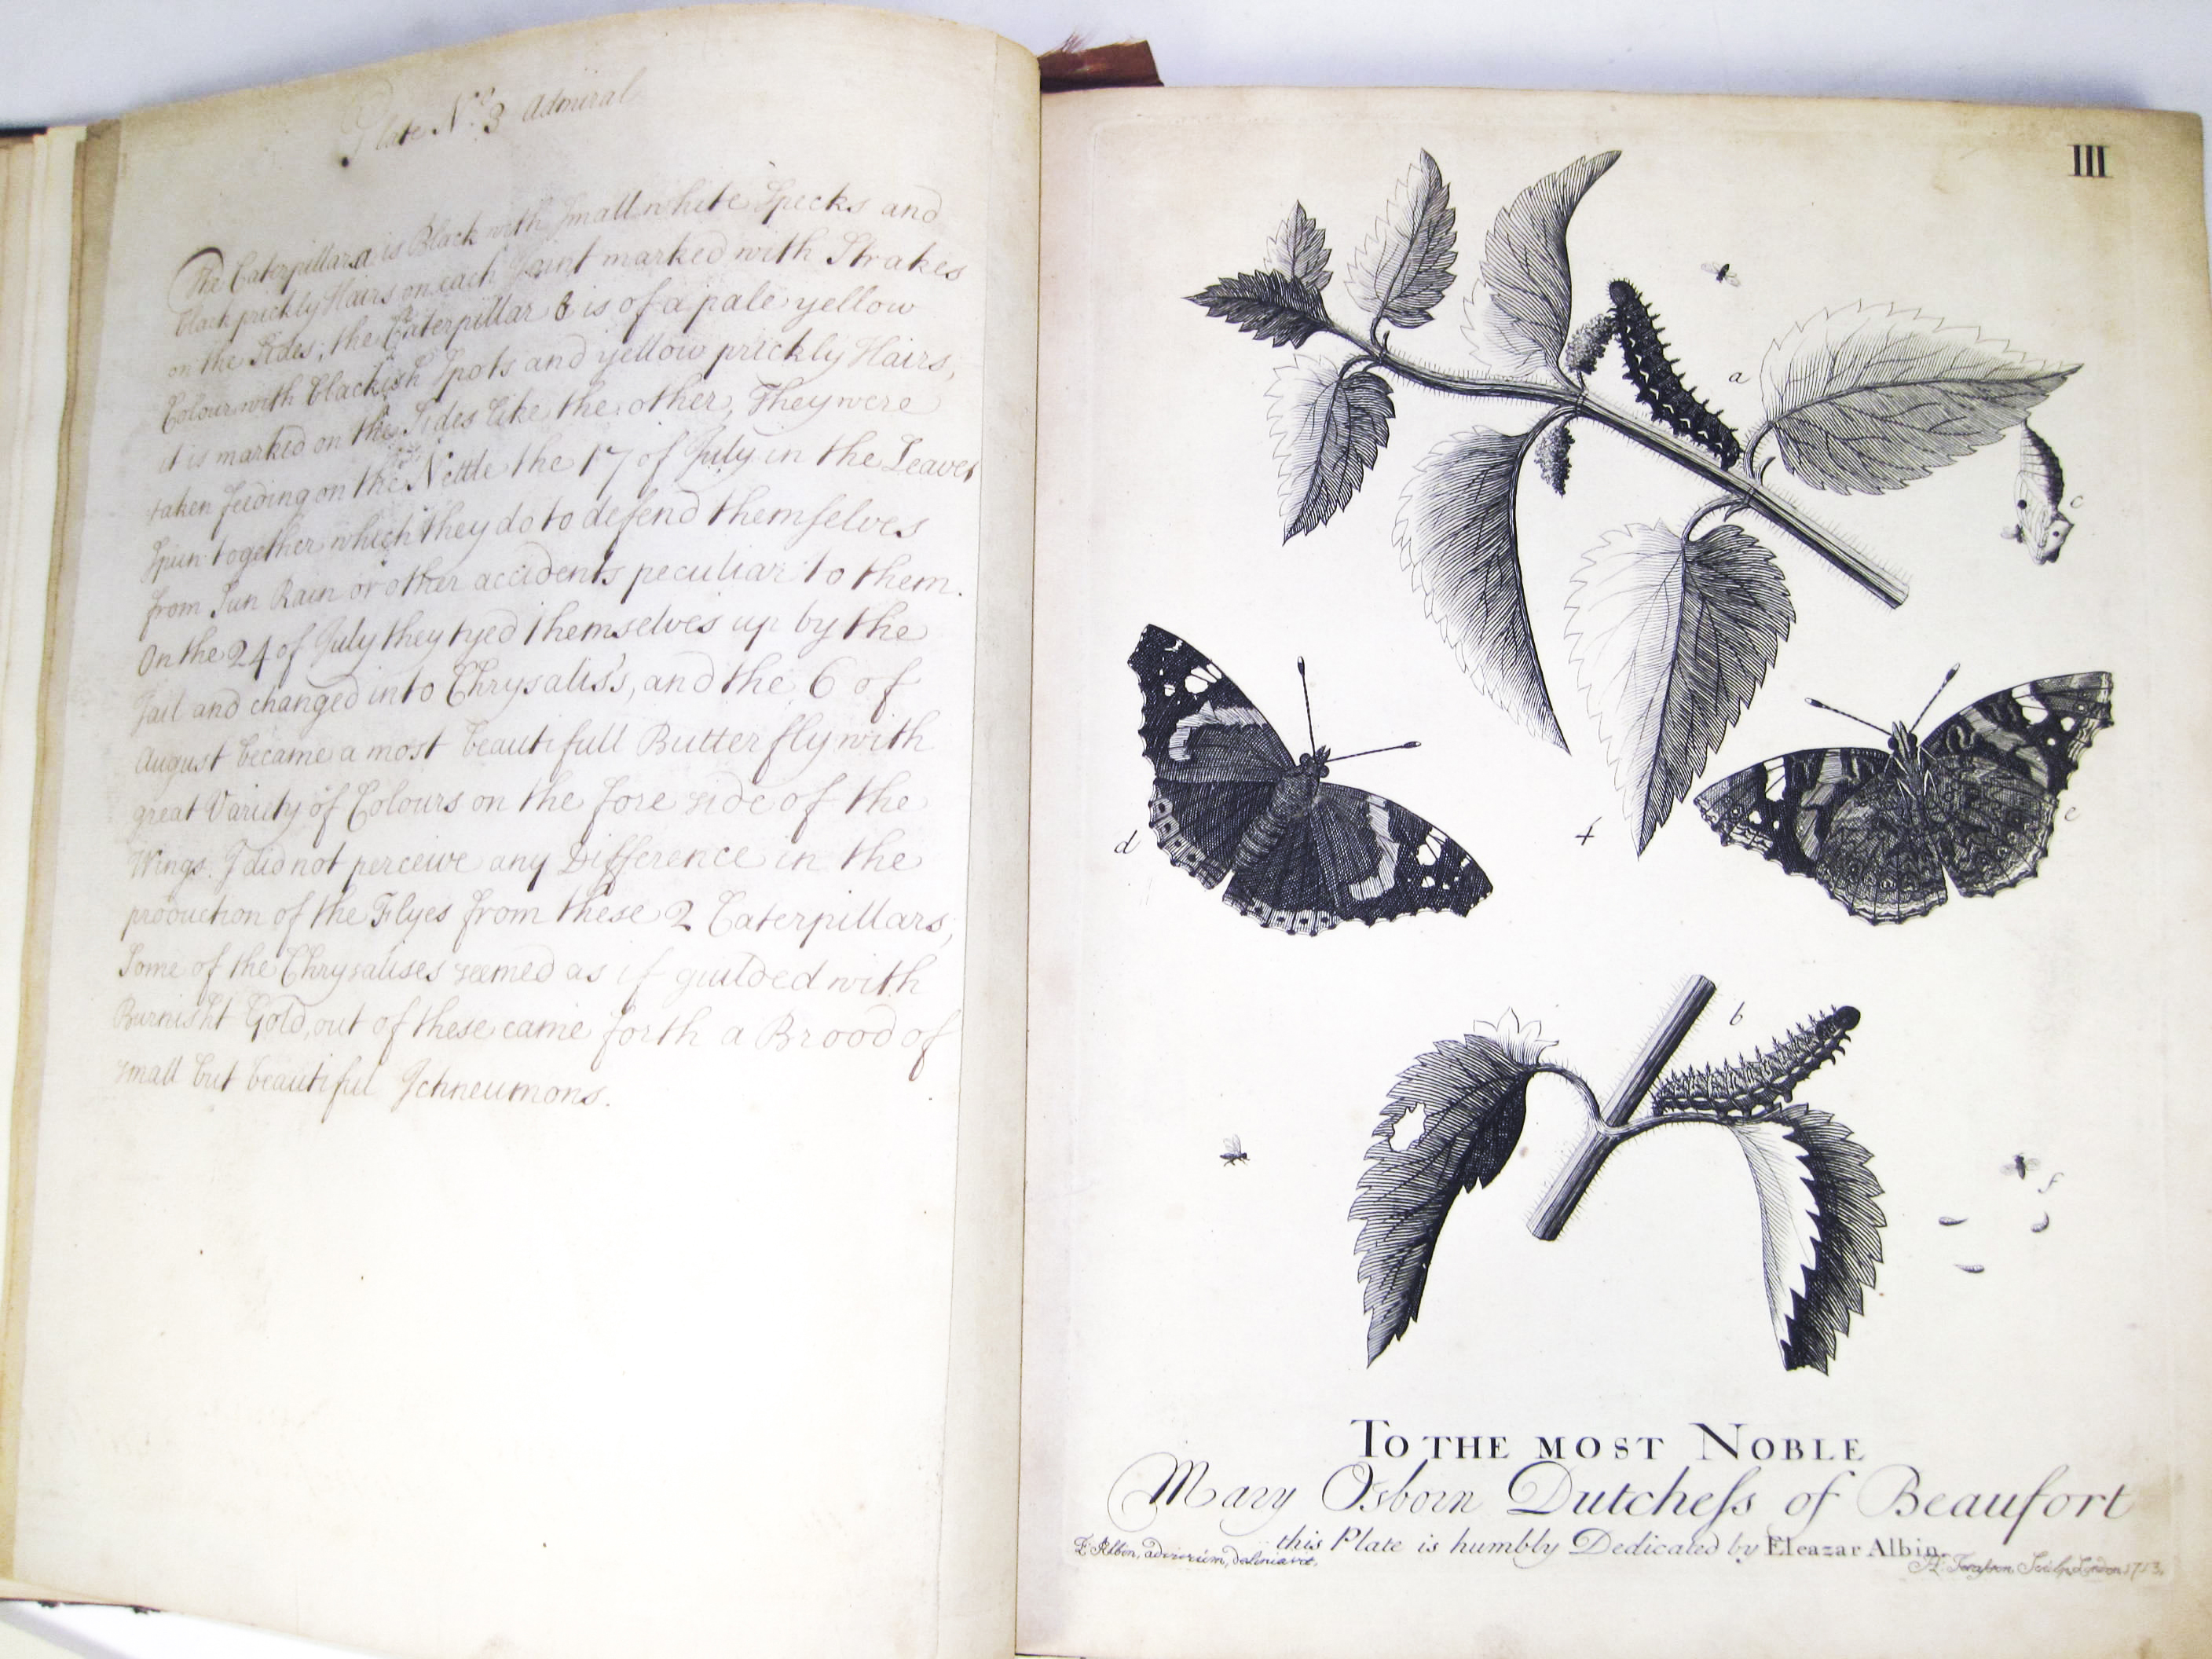 Plate No. 3 Admiral
The Caterpillar a is Black with small white Specks and
black prickly Hairs on each Joint marked with Strakes
on the Sides; the Caterpillar b is of a pale yellow
Colour with blackish Spots and yellow prickly Hairs,
it is marked on the Sides like the other, They were
taken feeding on the Nettle the 17 of July in the Leaves
Spun together which they do to defend themselves
from Sun Rain or other accidents peculiar to them.
On the 24 of July they tyed themselves up by the
Tail and changed into Chrysaliss, and the 6 of
August became a most beautifull Butterfly with
great Variety of Colours on the fore side of the
Wings. I did not perceive any Difference in the
production of the Flyes from these 2 Caterpillars;
Some of the Chrysalises seemed as if guilded with
Burnisht Gold, out of these came forth a Brood of
small but beautiful Ichneumons.
III
a
c
d
f
e
b
f
To the most Noble
Mary Osborn Dutcheſs of Beaufort
this Plate is humbly Dedicated by Eleazar Albin.
E. Albin, delineavit.
Sculp. London 1713.